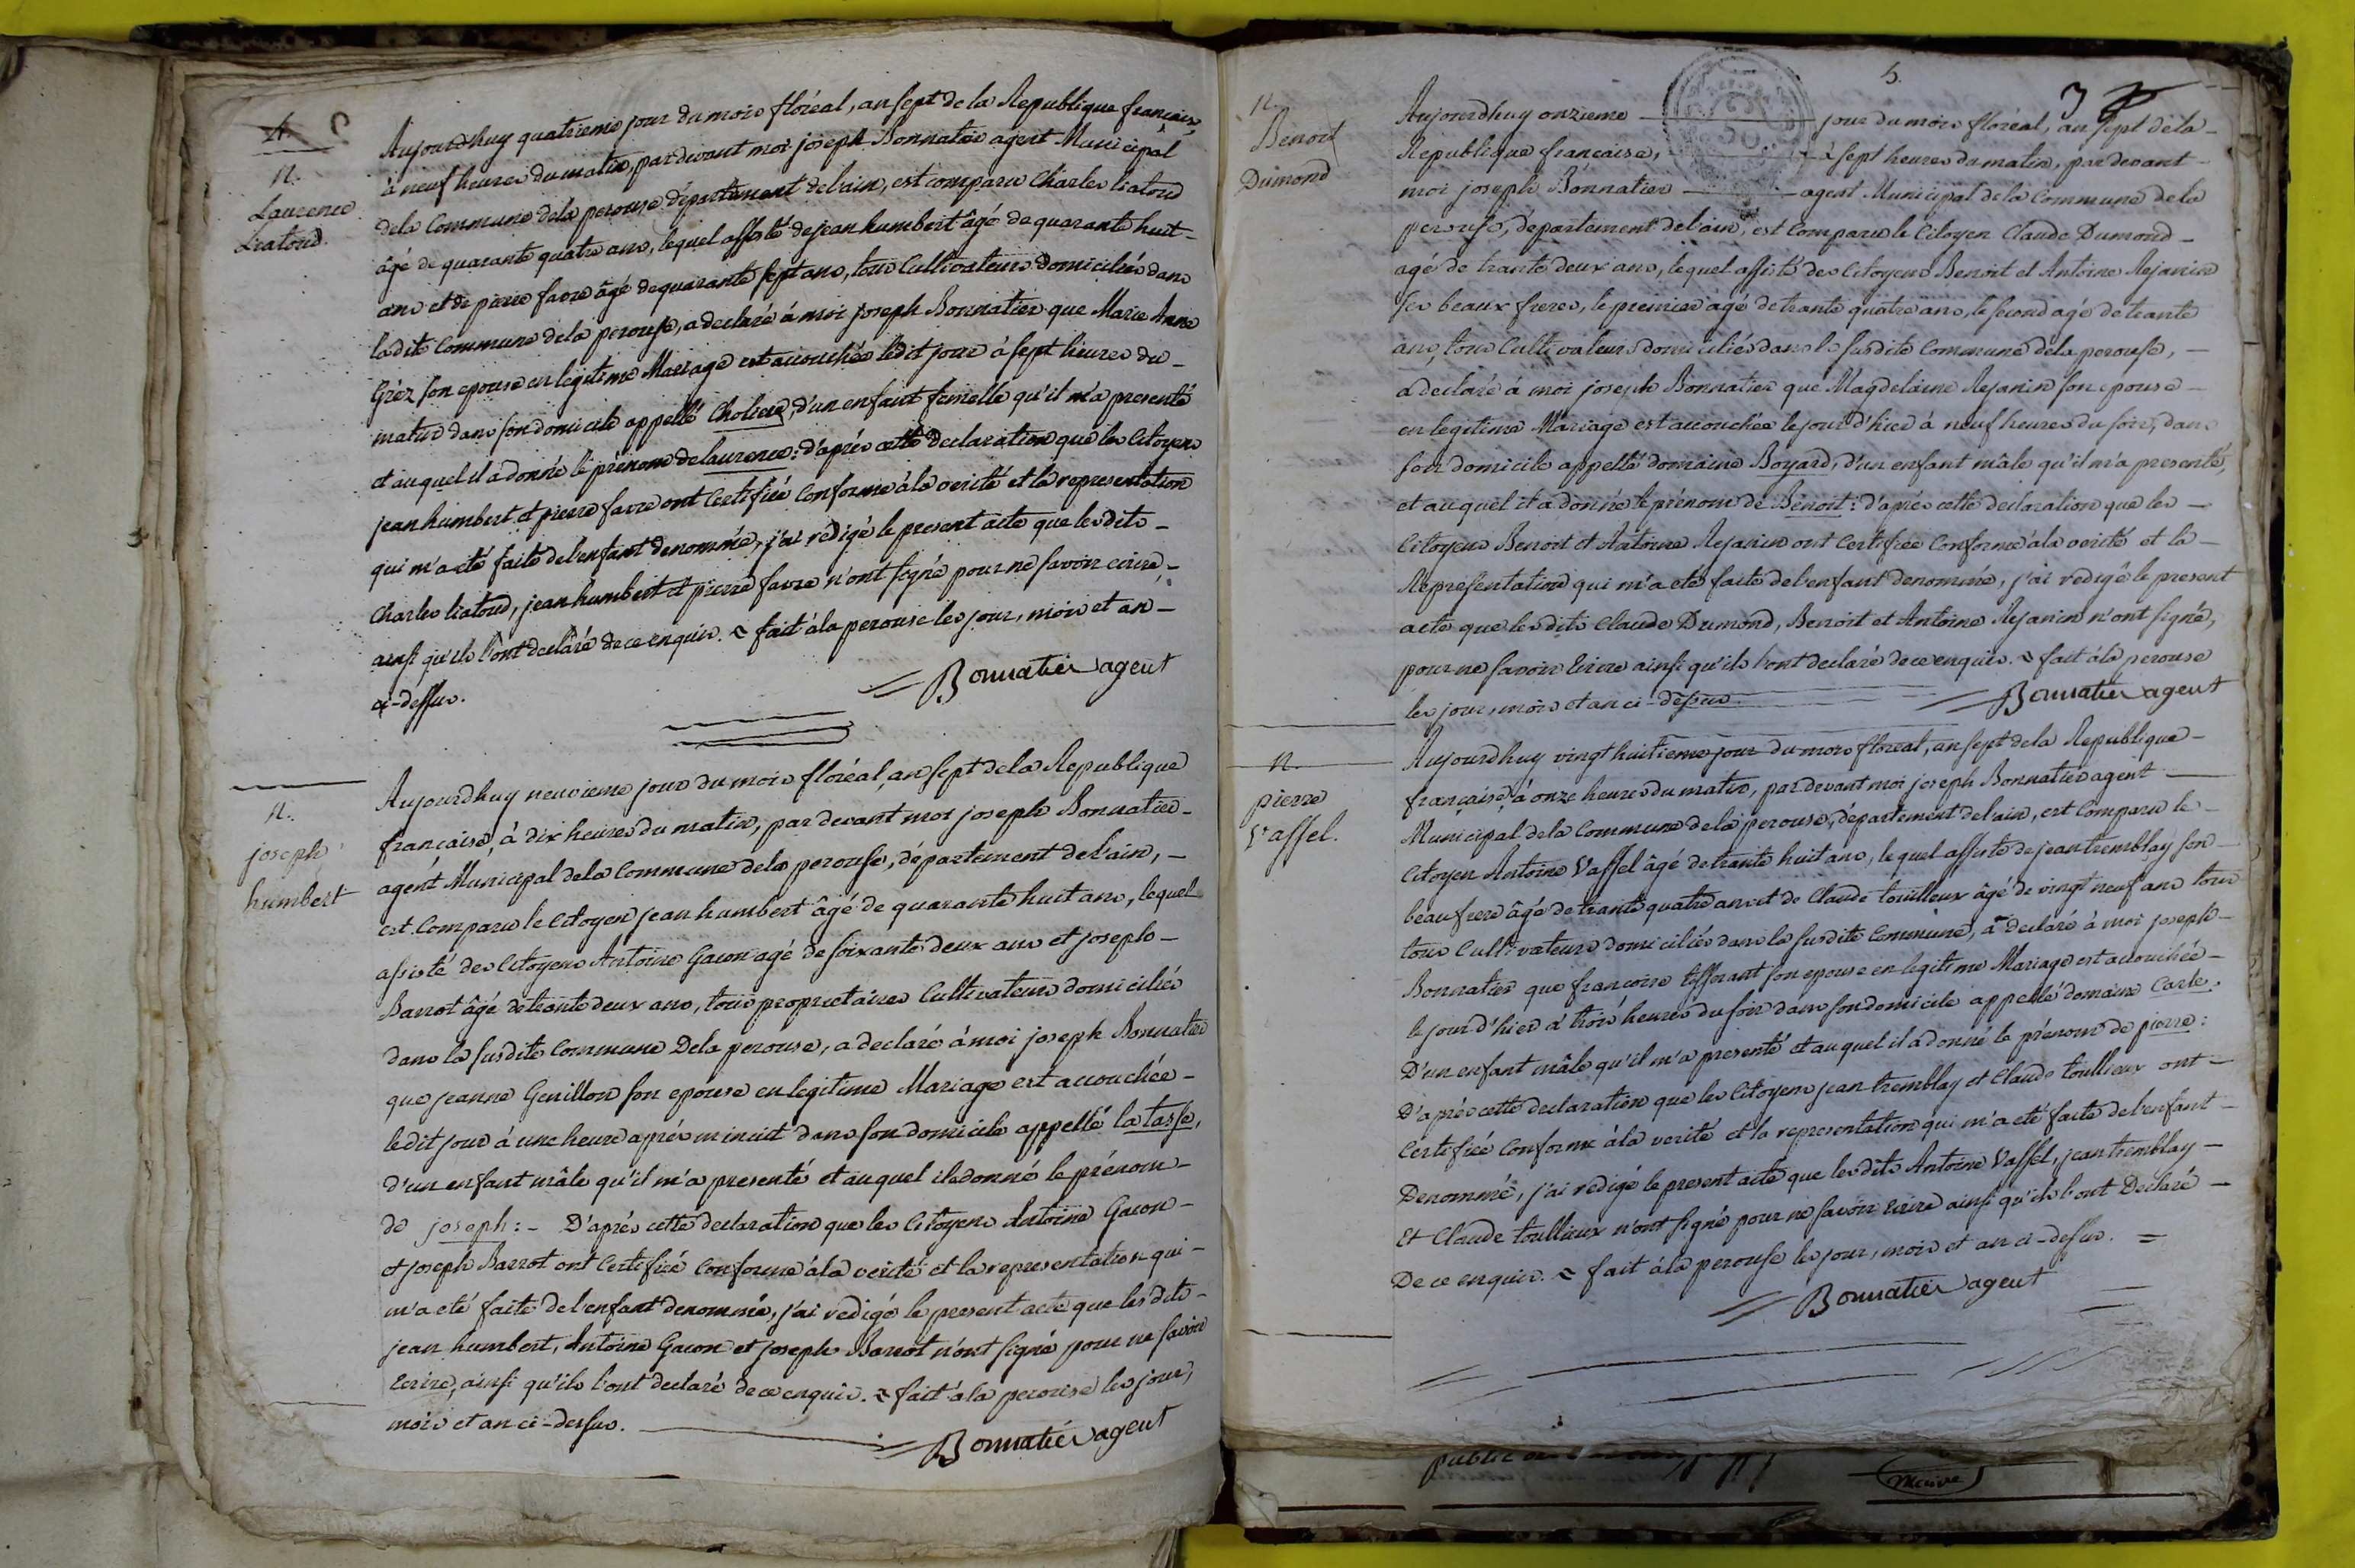 n.
Laurence
Liatoud.
Aujourdhuy quatrieme jour du mois floréal, an sept de la Republique francaise,
à neuf heures du matin, pardevant moi joseph Bonnatier agent Municipal
dela Commune dela perouse département del'ain, est comparu Charles Liatoud
âgé de quarante quatre ans, lequel assisté de jean humbert âgé de quarante huit -
ans et de pierre favre âgé de quarante sept ans, tous Cultivateurs domiciliés dans
ladite Commune dela perouse, a declaré à moi joseph Bonnatier que Marie Anne
Gréz son epouse en legitime Mariage est accouchée ledit jour à sept heures du -
matin dans son domicile appellé Choliere, d'un enfant femelle qu'il m'a presenté
et auquel il a donné le prénom de laurence : d'après cette declaration que les Citoyens
jean humbert et pierre favre ont Certifiée Conforme à la verité et la representation
qui m'a eté faite de l'enfant denommé, j'ai rédigé le present acte que lesdits -
Charles Liatoud, jean humbert et pierre favre n'ont signé pour ne savoir ecrire, -
ainsi qu'ils l'ont declaré de ce enquis. fait à la perouse les jour, mois et an -
ci-dessus.
Bonnatier agent
n.
joseph
humbert
Aujourdhuy neuvieme jour du mois floréal, an sept de la Republique
francaise, à dix heures du matin, par devant moi joseph Bonnatier -
agent Municipal dela Commune dela perouse, département de l'ain, -
est Comparu le Citoyen jean humbert âgé de quarante huit ans, lequel
assisté des Citoyens Antoine Gacon agé de soixante deux ans et joseph -
Barrot âgé de trante deux ans, tous proprietaires Cultivateurs domiciliés
dans la susdite Commune Dela perouse, a declaré à moi joseph Bonnatier
que jeanne Genillon son epouse en legitime Mariage est accouchée -
ledit jour à une heure après minuit dans son domicile appellé la tasse,
d'un enfant mâle qu'il m'a presenté et auquel il a donné le prénom -
de joseph : - D'après cette declaration que les Citoyens Antoine Gacon -
et joseph Barrot ont Certifié Conforme à la verité et la representation qui -
m'a eté faite de l'enfant denommé, j'ai redigé le present acte que lesdits -
jean humbert, Antoine Gacon et joseph Barrot n'ont signé pour ne savoir
Ecrire, ainsi qu'ils l'ont declaré de ce enquis. fait à la perouse les jour,
mois et an ci-dessus.
Bonnatier agent
5.
n.
Benoit
Dumond
Aujourdhuy onzieme jour du mois floréal, an sept de la -
Republique francaise, à sept heures du matin, par devant -
moi joseph Bonnatier agent Municipal de la Commune de la
perouse, département de l'ain, est Comparu le Citoyen Claude Dumond -
agé de trante deux ans, lequel assisté des Citoyens Benoit et Antoine Rejanin
ses beaux freres, le premier agé de trante quatre ans, le second agé de trante
ans, tous Cultivateurs domiciliés dans la susdite Commune dela perouse, -
a declaré à moi joseph Bonnatier que Magdelaine Rejanin son epouse -
en legitime Mariage est accouchée le jour d'hier à neuf heures du soir, dans
son domicile appellé domaine Boyard, d'un enfant mâle qu'il m'a presenté,
et auquel il a donné le prénom de Benoit : d'après cette declaration que les -
Citoyens Benoit et Antoine Rejanin ont Certifiée Conforme à la verité et la -
Representation qui m'a eté faite de l'enfant denommé, j'ai redigé le present
acte que lesdits Claude Dumond, Benoit et Antoine Rejanin n'ont signé,
pour ne savoir Ecrire ainsi qu'ils l'ont declaré de ce enquis. fait à la perouse
les jour, mois et an ci-dessus.
Bonnatier agent
n.
pierre
Vassel.
Aujourdhuy vingt huitieme jour du mois floréal, an sept dela Republique -
française, à onze heures du matin, par devant moi joseph Bonnatier agent
Municipal dela Commune dela perouse, département de l'ain, est Comparu le -
Citoyen Antoine Vassel âgé de trante huit ans, lequel assisté de jean tremblay son
beau frere âgé de trante quatre ans et de Claude toullieux âgé de vingt neuf ans tous
tous Cultivateurs domiciliés dans la susdite Commune, a declaré à moi joseph -
Bonnatier que francoise tifferant son epouse en legitime Mariage est accouchée -
le jour d'hier à trois heures du soir dans son domicile appellé domaine Carle,
D'un enfant mâle qu'il m'a presenté et auquel il a donné le prénom de pierre :
D'après cette declaration que les Citoyens jean tremblay et Claude toullieux ont -
Certifiée Conforme à la verité et la representation qui m'a eté faite de l'enfant -
Denommé, j'ai redigé le present acte que lesdits Antoine Vassel, jean tremblay -
Et Claude toullieux n'ont signé pour ne savoir Ecrire ainsi qu'ils l'ont Declaré -
De ce enquis. fait à la perouse les jour, mois et an ci-dessus.
Bonnatier agent
public
Maire